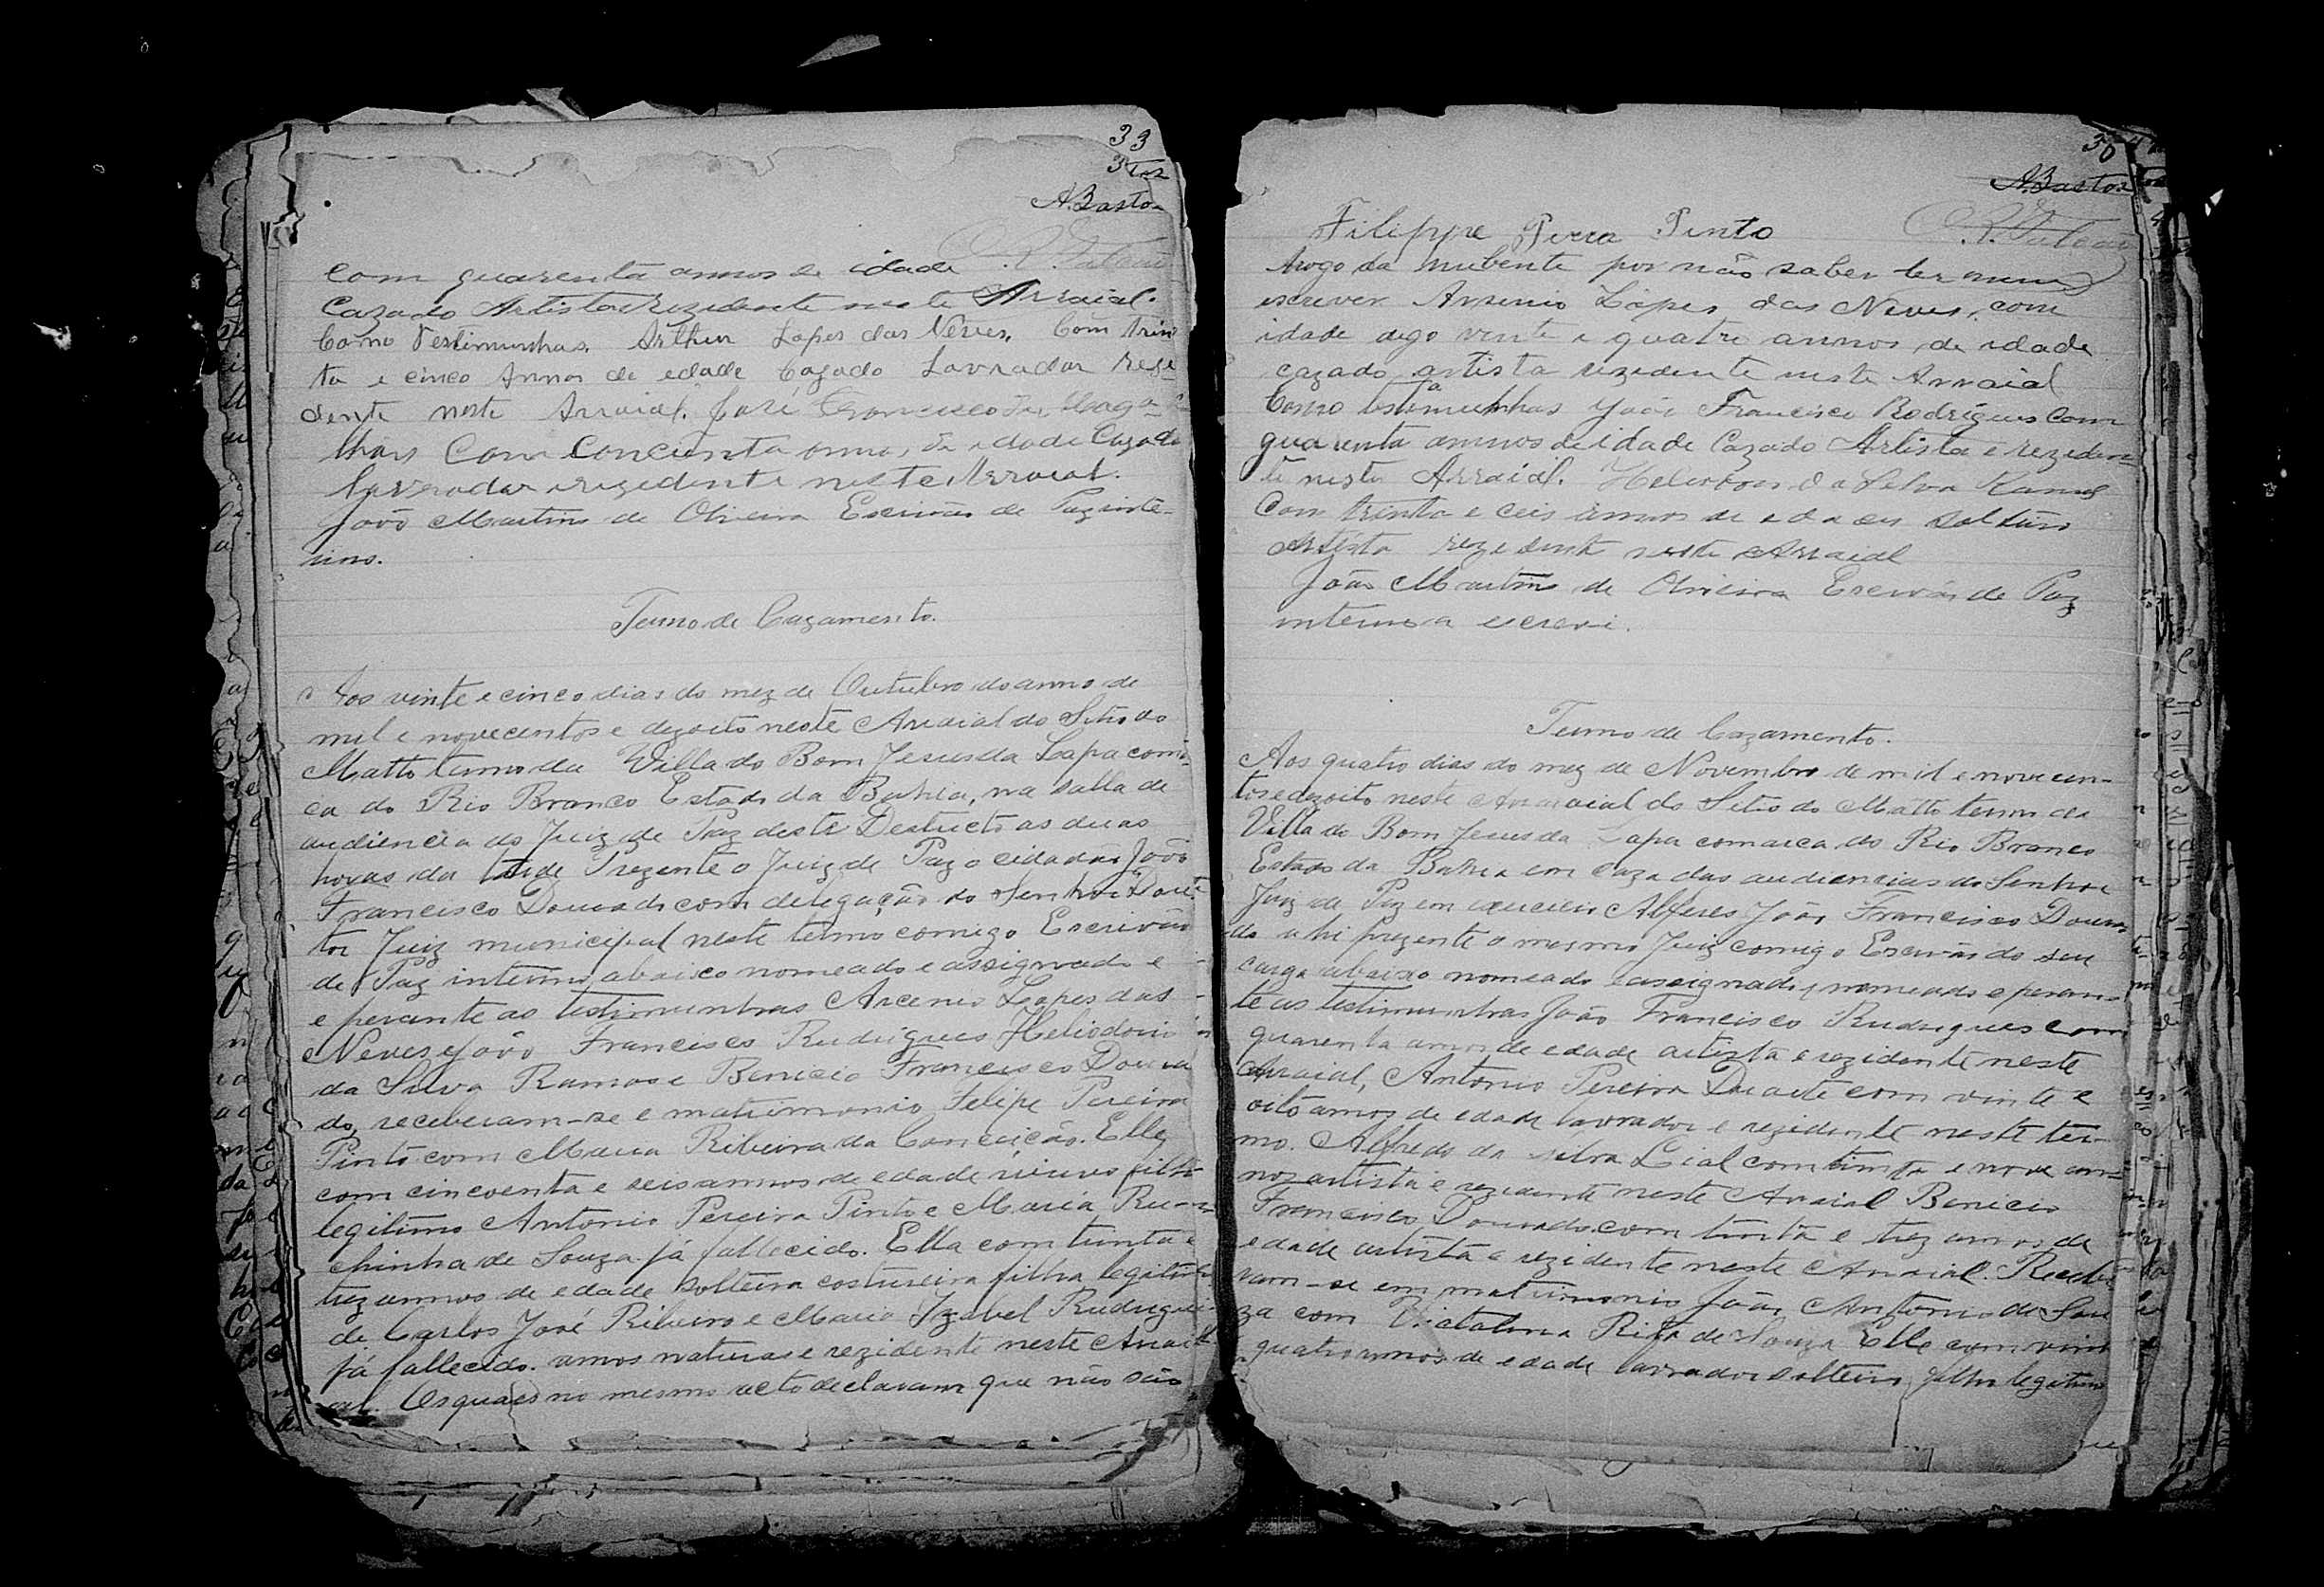 33
A. Bastos
com quarenta annos de idade
Cazado Artista rezidente neste Arraial.
Como Testimunhas. Arthur Lopes das Neves. Com trin
ta e cinco Annos de edade Cazado Lavrador rezi
dente neste Arraial. José Francisco de Maga
lhais Com Concuenta annos de idade Cazado
lavrador rezidente neste Arraial.
João Martins de Oliveira Escrivão de Paz inte-
rino.
Termo de Cazamento.
Aos vinte e cinco dias do mez de Outubro do anno de
mil e novecentos e dezoito neste Arraial do Sitio do
Matto termo da Villa do Bom Jesus da Lapa comar
ca do Rio Branco Estado da Bahia, na salla de
audiencia do Juiz de Paz deste Destricto as duas
horas da tarde Prezente o Juiz de Paz o cidadão João
Francisco Dourado com delegação do Senhor Dou
tor Juiz municipal neste termo comigo Escrivão
de Paz interino abaixo nomeado e assignado e
e perante as testimunhas Arcenio Lopes das
Neves e João Francisco Rudrigues Heliodorio
da Silva Ramos e Benicio Francisco Doura
do, receberam-se e matrimonio Felipe Pereira
Pinto com Maria Ribeira da Conceição. Elle
com cincoenta e seis annos de edade viuvo filho
legitimo Antonio Pereira Pinto e Maria Ru-
chinha de Souza já fallecido. Ella com trinta e
trez annos de edade solteira costureira filha legitima
de Carlos José Ribeiro e Maria Izabel Rudrigues
já fallecido. amos naturais e rezidente neste Arrai
al. Os quaes no mesmo acto declaram que não são
A. Bastos
Filippe Perra Pinto
Arogo da nubente por não saber ler nem
escrever Arsenio Lopes das Neves, com
idade digo vinte e quatro annos de idade
cazado artista rezidente neste Arraial
Como testimunhas João Francisco Rodrigues com
quarenta annos de idade Cazado Artista e reziden-
te nesta Arraial. Heliodoro da Selva Ramos
Com trinta e ceis annos de edade solteiro
Artista rezedente neste Arraial
João Martins de Oliveira Escrivão de Paz
interino a escrevi.
Termo de Cazamento.
Aos quatro dias do mez de Novembro de mil e novecen-
tos e dezoito neste Arraial do Sitio do Matto termo da
Villa do Bom Jesus da Lapa comarca do Rio Branco
Estado da Bahia em caza das audiencias do Senhor
Juiz de Paz em exercicio Alferes João Francisco Doura
do ahi prezente o mesmo Juiz comigo Escrivão do seu
cargo abaixo nomeado e assignado, nomeado e peran-
te as testimunhas João Francisco Rudrigues com
quarenta annos de edade artista e rezidente neste
Arraial, Antonio Pereira Duarte com vinte e
oito annos de edade lavrador e rezidente neste ter-
mo. Alfredo da silva Lial com trinta e nove an-
nos artista e rezidente neste Arraial Benicio
Francisco Dourado com trinta e trez annos de
edade artista e rezidente neste Arraial. Recebe
ram-se em matrimonio João Antonio de Sou
za com Rita de Souza Elle com vint
quatro annos de edade lavrador solteiro filho legitimo